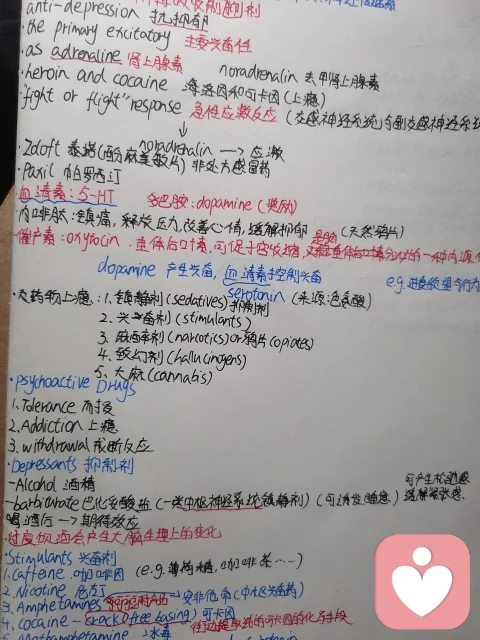 anti-depression 抗抑郁
·the primary excitatory 主要兴奋性
·as adrenaline 肾上腺素 noradrenalin 去甲肾上腺素
·heroin and cocaine 海洛因和可卡因(上瘾)
"fight or flight" response 急性应激反应 (交感神经系统与副交感神经系统
noradrenalin → 应激
·Zoloft
非处方感冒药
·Paxil 帕罗西汀
血清素: 5-HT 多巴胺: dopamine (奖励)
·内啡肽: 镇痛, 释放压力, 改善心情, 缓解抑郁 (天然鸦片)
·催产素: oxytocin. 垂体后叶素, 可促子宫收缩,
dopamine 产生兴奋, 血清素于控制兴奋
serotonin (来源:色氨酸)
·大药物上瘾: 1. 镇静剂 (sedatives) 抑制剂
2. 兴奋剂 (stimulants)
3. 麻醉剂 (narcotics) or 鸦片 (opiates)
4. 致幻剂 (hallucingens)
5. 大麻 (cannabis)
·psychoactive Drugs
1. Tolerance 耐受
2. Addiction 上瘾
3. withdrawal 戒断反应
·Depressants 抑制剂
-Alcohol 酒精
-barbiturate 巴比妥酸盐 (一类中枢神经系统镇静剂) (可诱发睡意) 缓解紧张感.
喝酒后 → 期待效应
过度饮酒会产生大脑生理上的变化
·Stimulants 兴奋剂
1. Caffeine 咖啡因 (e.g. 薄荷糖, 咖啡茶……)
2. Nicotine 尼古丁
3. Amphetamines → 安非他命 (中枢兴奋药)
4. cocaine - crack (free basing) 可卡因
Methamphetamine 冰毒